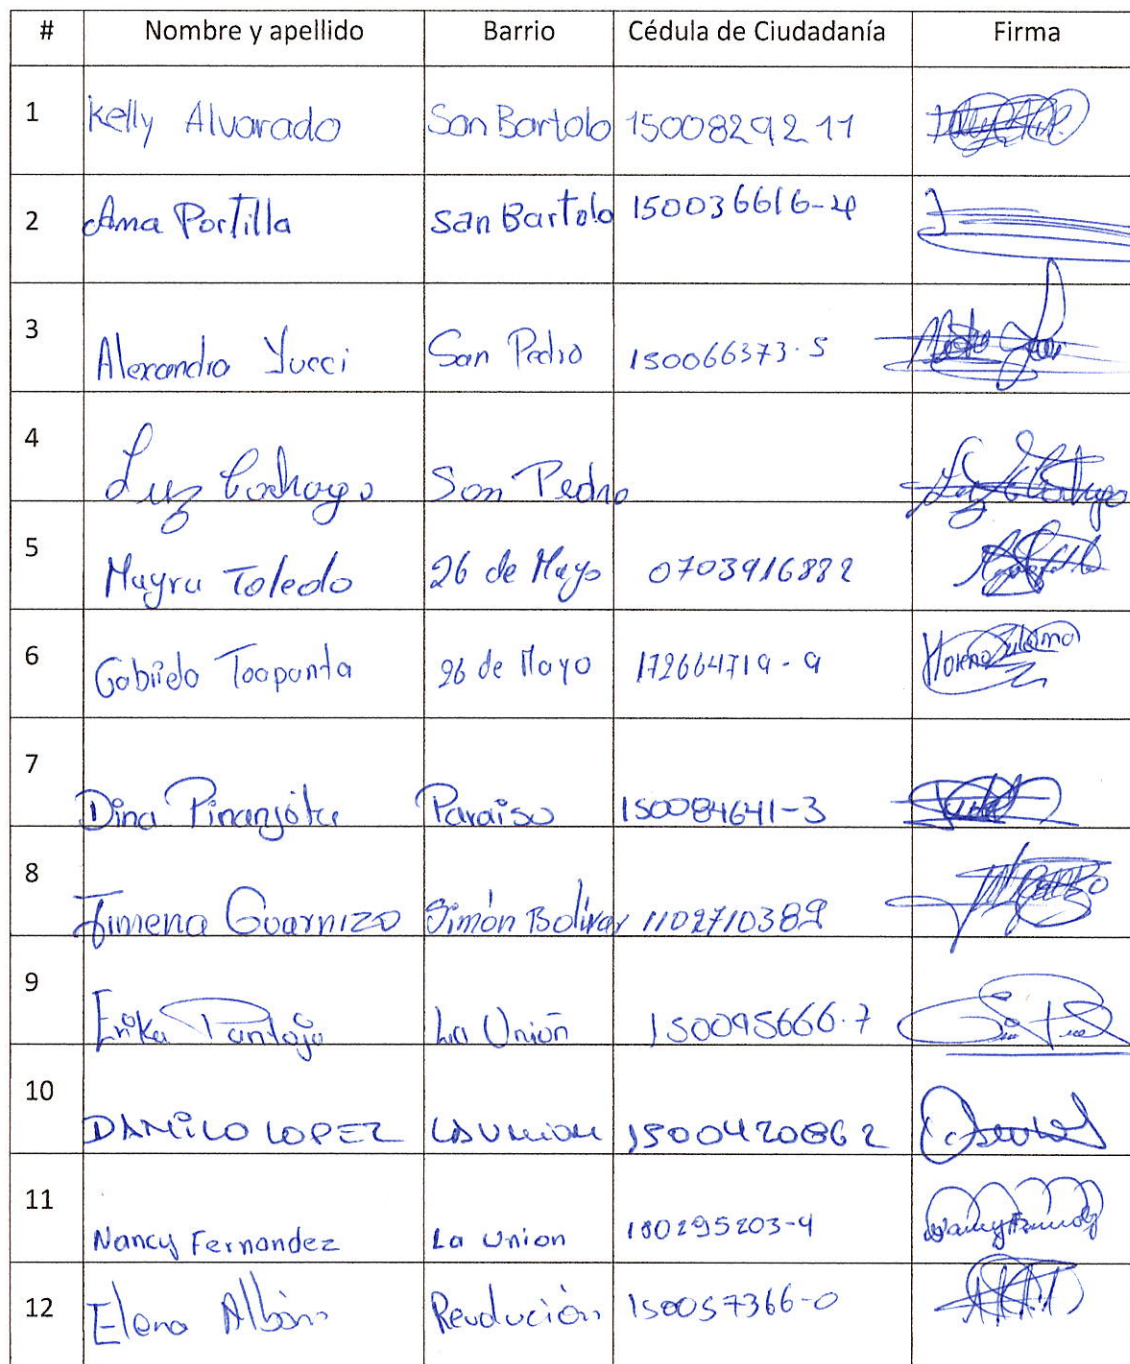 # Nombre y apellido Barrio Cédula de Ciudadanía Firma
1 Kelly Alvarado San Bartolo 1500829211
2 Ana Portilla San Bartolo 150036616-4
3 Alexandra Yucci San Pedro 150066373-5
4 Luz San Pedro
5 Mayra Toledo 26 de Mayo 0703916882
6 Gabriela Toapanta 26 de Mayo 172664719-9
7 Dina Paraiso 150084641-3
8 Jimena Guarnizo Simón Bolívar 1102710389
9 Erika Pantoja La Unión 150095666-7
10 DANILO LOPEZ LA UNION 1500420862
11 Nancy Fernandez La Union 180295203-4
12 Elena Albán Revolución 150057366-0